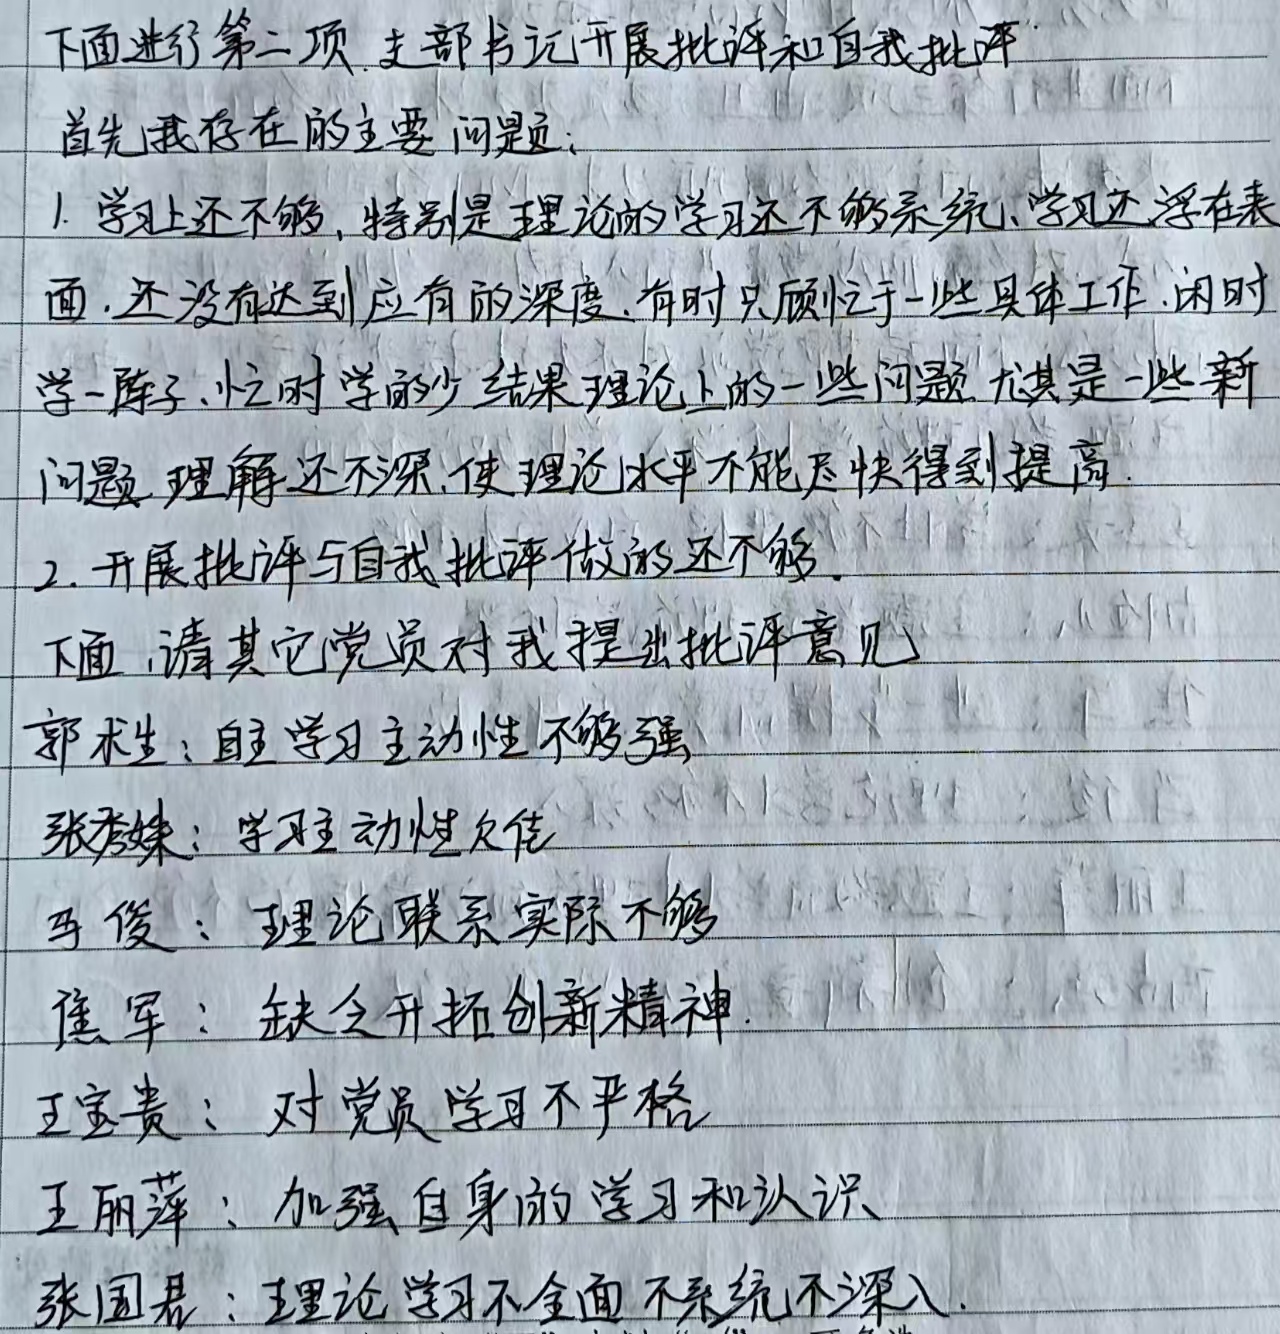 下面进行第二项.支部书记开展批评和自我批评.
首先我存在的主要问题:
1.学习上还不够、特别是理论的学习还不够系统、学习还浮在表
面.还没有达到应有的深度.有时只顾忙于一些具体工作.闲时
学一阵子.忙时学的少结果理论上的一些问题尤其是一些新
问题理解还不深.使理论水平不能尽快得到提高.
2.开展批评与自我批评做的还不够.
下面,请其它党员对我提出批评意见
郭术生:自主学习主动性不够强
张秀妹:学习主动性欠佳
马俊:理论联系实际不够
焦军:缺乏开拓创新精神.
王宝贵:对党员学习不严格
王丽萍:加强自身的学习和认识
张国君:理论学习不全面不系统不深入.